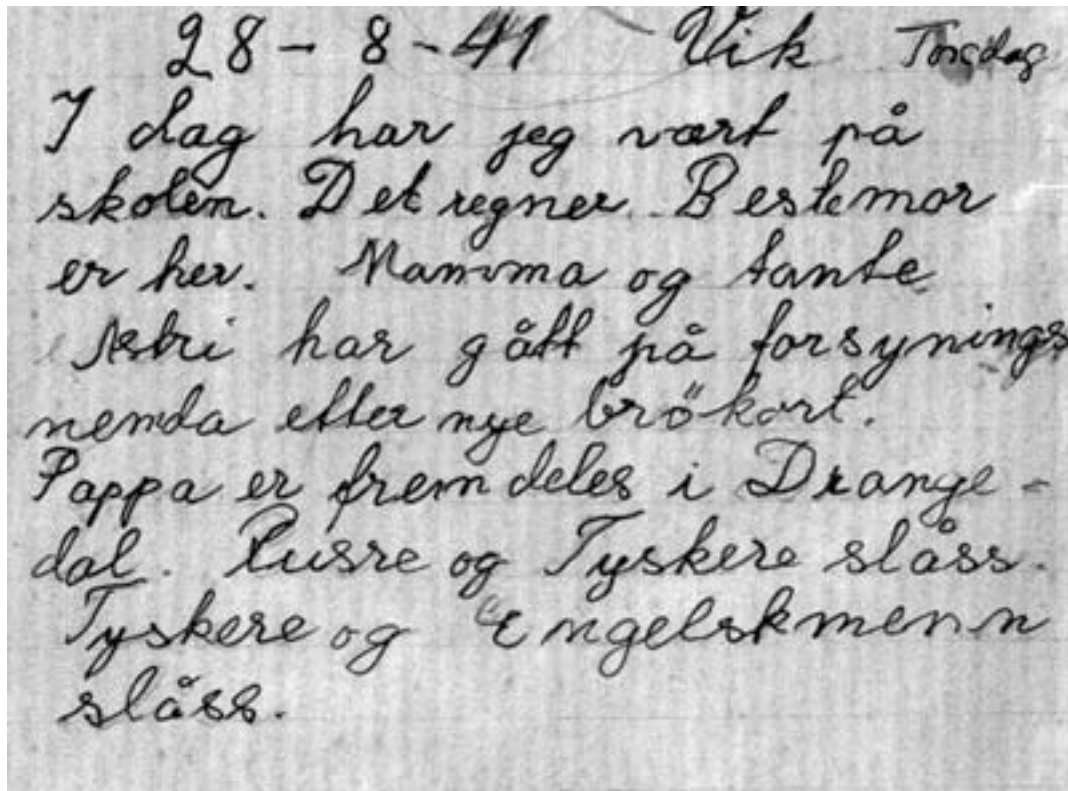 28 - 8 - 41 Vik Torsdag
I dag har jeg vært på
skolen. Det regner. Bestemor
er her. Mamma og tante
Astri har gått på forsynings
nemda etter nye brökort.
Pappa er fremdeles i Drange-
dal. Russe og Tyskere slåss.
Tyskere og Engelskmenn
slåss.